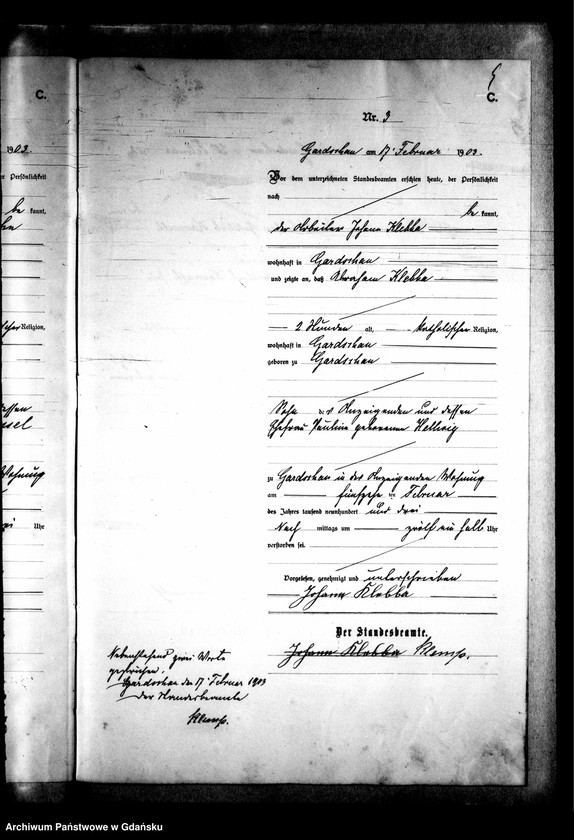 C.
1903.
r Persönlichkeit
be kannt,
Religion,
essen
Wohnung
Uhr
C.
Nr. 3
Gardschau am 17 Februar 1903.
Vor dem unterzeichneten Standesbeamten erschien heute, der Persönlichkeit
nach
be kannt,
der Arbeiter Johann Klebba
wohnhaft in Gardschau
und zeigte an, daß Abraham Klebba
2 Stunden alt, katholischer Religion,
wohnhaft in Gardschau
geboren zu Gardschau
Sohn des Anzeigenden und dessen
Ehefrau Pauline geborenen Hellwig
zu Gardschau in des Anzeigenden Wohnung
am fünfzehn ten Februar
des Jahres tausend neunhundert und drei
Nach mittags um zwölf ein halb Uhr
verstorben sei.
Vorgelesen, genehmigt und unterschrieben
Johann Klebba
Der Standesbeamte.
Johann Klebba Klemp.
Nebenstehend zwei Worte
gestrichen.
Gardschau den 17 Februar 1903
Der Standesbeamte
Klemp.
Archiwum Państwowe w Gdańsku